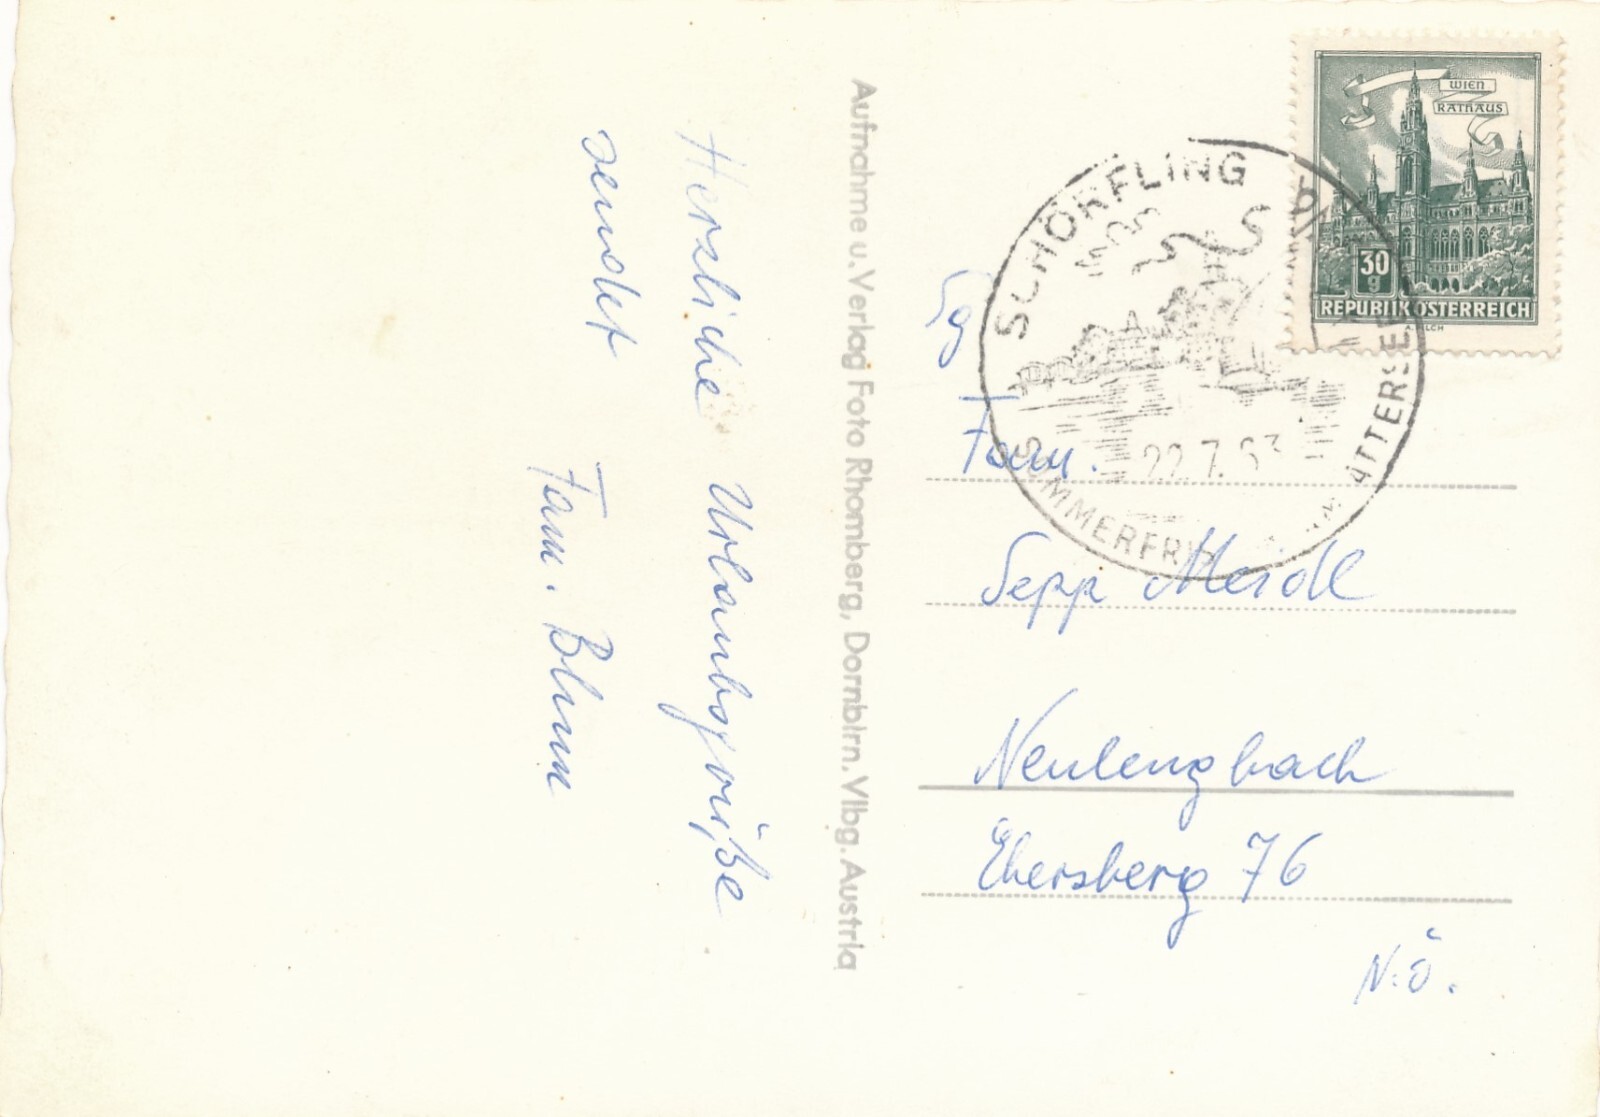 Herzliche Urlaubsgrüße
sendet Fam. Blum
Aufnahme u. Verlag Foto Rhomberg, Dornbirn. Vlbg. Austria
WIEN
RATHAUS
30
g
REPUBLIK ÖSTERREICH
SCHÖRFLING AM ATTERSEE
22.7.63
SOMMERFRI
Fam.
Sepp Meidl
Neulengbach
Ebersberg 76
N.Ö.